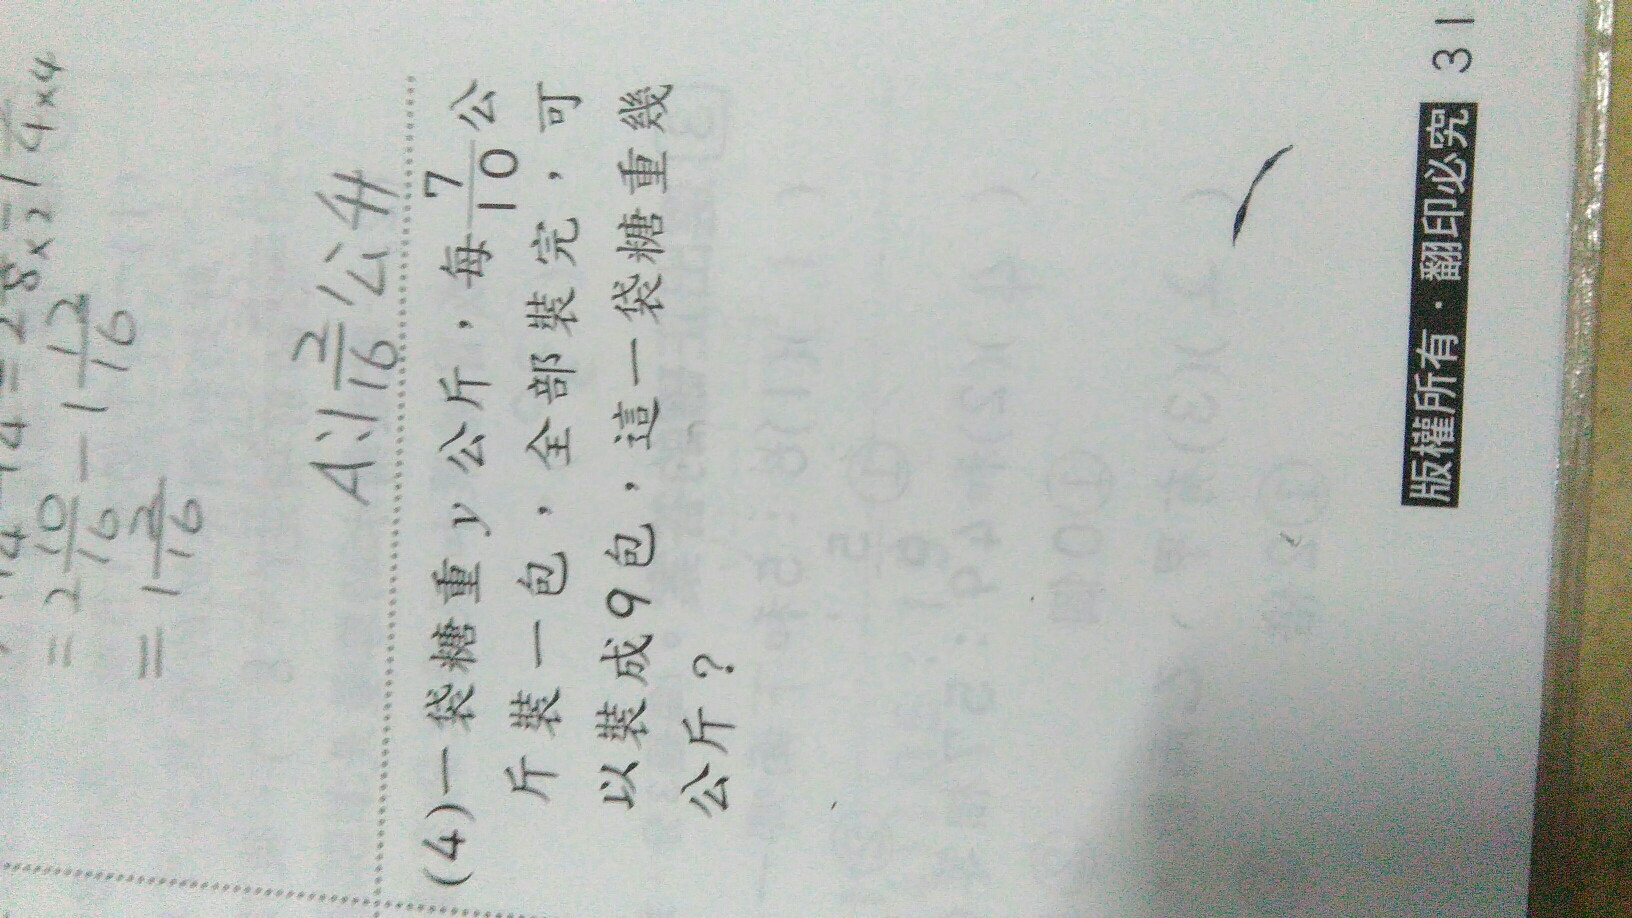 = 2 10/16 - 1 12/16
= 1 2/16
A:1 2/16 公升
(4)一袋糖重 y 公斤，每 7/10 公
斤裝一包，全部裝完，可
以裝成9包，這一袋糖重幾
公斤？
版權所有·翻印必究 31